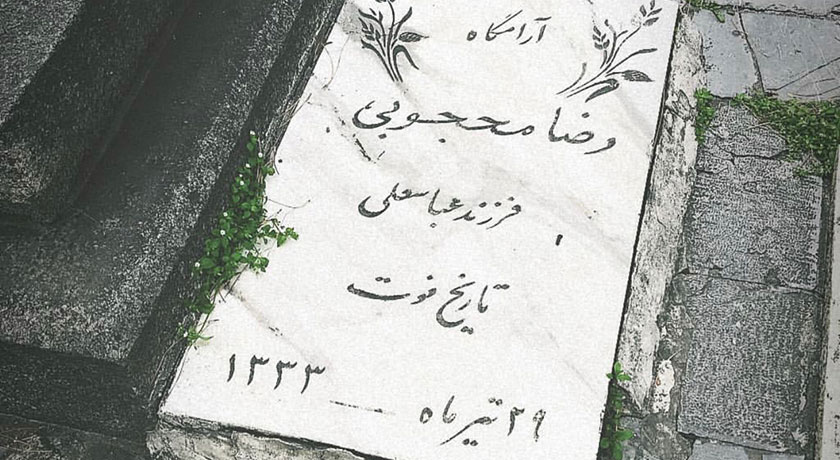 آرامگاه
رضا محجوبی
فرزند عباسعلی
تاریخ فوت
۲۹ تیرماه — ۱۳۳۳